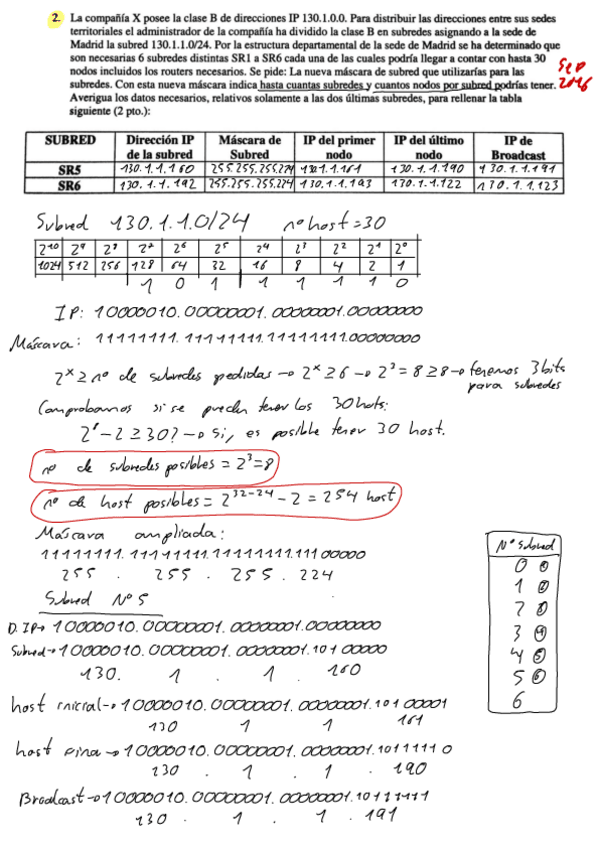 2. La compañía X posee la clase B de direcciones IP 130.1.0.0. Para distribuir las direcciones entre sus sedes
territoriales el administrador de la compañía ha dividido la clase B en subredes asignando a la sede de
Madrid la subred 130.1.1.0/24. Por la estructura departamental de la sede de Madrid se ha determinado que
son necesarias 6 subredes distintas SR1 a SR6 cada una de las cuales podría llegar a contar con hasta 30
nodos incluidos los routers necesarios. Se pide: La nueva máscara de subred que utilizarías para las
subredes. Con esta nueva máscara indica hasta cuantas subredes y cuantos nodos por subred podrías tener.
Averigua los datos necesarios, relativos solamente a las dos últimas subredes, para rellenar la tabla
siguiente (2 pto.):
Sep
2016
SUBRED Dirección IP de la subred Máscara de Subred IP del primer nodo IP del último nodo IP de Broadcast
SR5 130.1.1.160 255.255.255.224 130.1.1.161 130.1.1.190 130.1.1.191
SR6 130.1.1.192 255.255.255.224 130.1.1.193 170.1.1.122 170.1.1.123
Subred 130.1.1.0/24 nº host=30
2¹⁰ 2⁹ 2⁸ 2⁷ 2⁶ 2⁵ 2⁴ 2³ 2² 2¹ 2⁰
1024 512 256 128 64 32 16 8 4 2 1
1 0 1 1 1 1 1 0
IP: 10000010.00000001.00000001.00000000
Máscara: 11111111.11111111.11111111.00000000
2ˣ ≥ nº de subredes pedidas → 2ˣ ≥ 6 → 2³ = 8 ≥ 8 → tenemos 3 bits
para subredes
Comprobamos si se pueden tener los 30 hots:
2⁵ - 2 ≥ 30? → Si, es posible tener 30 host.
nº de subredes posibles = 2³ = 8
nº de host posibles = 2³²⁻²⁴ - 2 = 254 host
Máscara ampliada:
11111111.11111111.11111111.11100000
255 . 255 . 255 . 224
Subred Nº 5
D. IP→ 10000010.00000001.00000001.00000000
Subred→ 10000010.00000001.00000001.10100000
130. 1 . 1 . 160
host inicial→ 10000010.00000001.00000001.10100001
130 1 1 161
host fina→ 10000010.00000001.00000001.10111110
130 . 1 . 1 . 190
Broadcast→ 10000010.00000001.00000001.10111111
130 . 1 . 1 . 191
Nº Subred
0 1
1 2
2 3
3 4
4 5
5 6
6